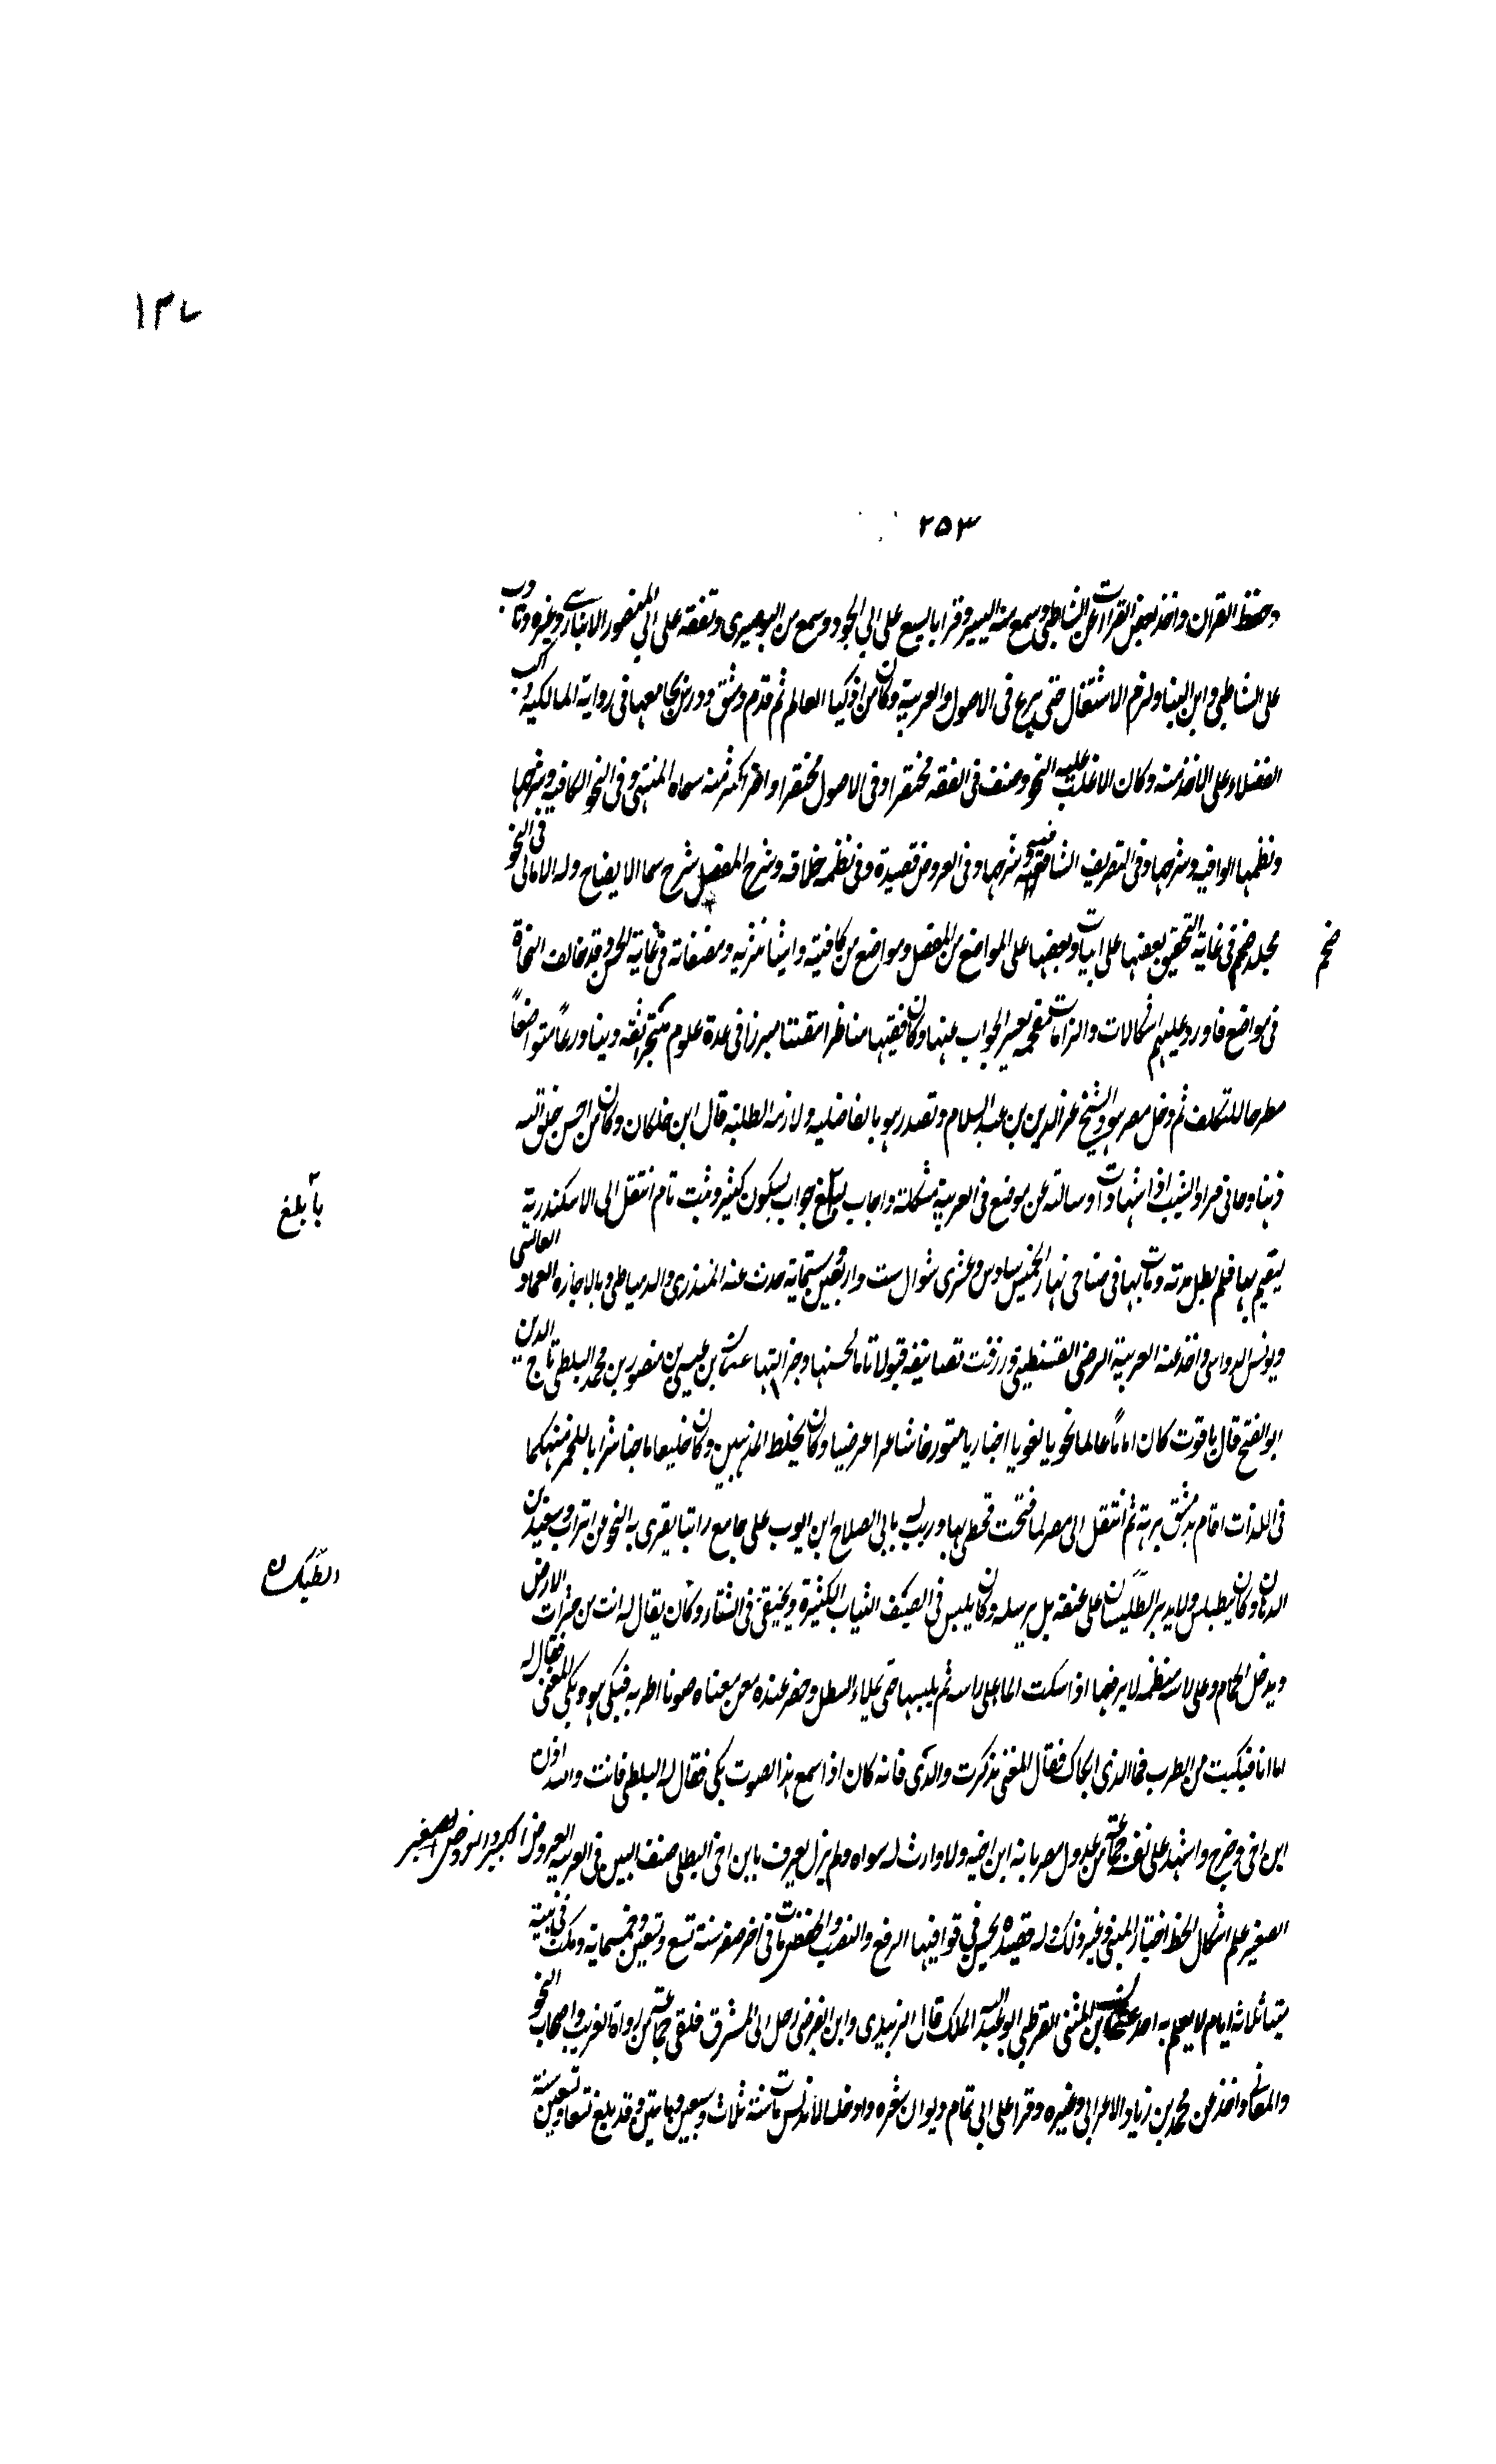 ١٣٧
٢٥٣
وحفظ القران واخذ بعض القراات عن الشاطبى وسمع منه اليسير وقرا بالسبع على ابى الجود وسمع من البوصيرى وتفقه على ابى المنصور الانبارى وغيره وتادب
على الشاطبى وابن البنا ولزم الاشتغال حتى برع فى الاصول والعربية وكان من اذكيا العالم ثم قدم دمشق ودرس بجامعها فى زواية المالكية واكب
الفضلاء على الاخذ منه وكان الاغلب عليه النحو وصنف فى الفقه مختصرا وفى الاصول مختصرا واخر اكبر منه سماه المنتهى وفى النحو الكافيه وشرحها
ونظمها الوافيه وشرحها وفى التصريف الشافيه وشرحها وفى العروض قصيدة وفى نظمه خلاقه وشرح المفصل شرح سما الايضاح وله الامالى فى النحو
مجلد ضخم فى غاية التحقيق بعضها على ابيات وبعضها على المواضع من المفصل ومواضع من كافيته واشيا نثريه ومصنفاته فى غاية الحسن وقد خالف النحاة
ضخم
فى مواضع فاورد عليهم اشكالات والزامات مفحمه يعسر الجواب عنها وكان فقيها مناظرا مفتيا مبرزا فى عدة علوم متبحرا ثقه دينا ورعاً متواضعاً
مطرحا للتكلف ثم دخل مصر هو والشيخ عز الدين بن عبد السلام وتصدر هو بالفاضليه ولازمه الطلبة قال ابن خلكان وكان من احسن خلق الله
ذهنا وجانى مرارا لسبب اداء شهادات وسالته عن موضع فى العربية مشكلة واجاب بابلغ جواب بسكون كثير وثبت تام انتقل الى الاسكندرية
بأبلغ
ليقيم بها فلم تطل مدته ومات بها فى ضاحى نهار الخميس سادس وعشرى شوال ست واربعين وستماية حدث عنه المنذرى والدمياطى وبالاجازه العماد العالسى
ويونس الدبوسى واخذ عنه العربية الرضى القسنطينى ورزقت تصانيفه قبولا تاما لحسنها وجزالتها عثمان بن عيسى بن منصور بن محمد البلطى تاج الدين
ابو الفتح قال ياقوت كان اماماً عالما نحويا لغويا اخباريا متورخا شاعرا عرضيا وكان يخلط المذهبين وكان خليعا ماجنا شرابا للخمر منهمكا
فى اللذات اقام بدمشق برهة ثم انتقل الى مصر لما فتحت فحظى بها ورتب له بابى الصلاح ابن ايوب على جامع راتبا يقرى به النحو من اتراب وسعيد بن
الدهان وكان يتطيلس ولا يدير الطّيلَسان على عنقه بل يرسله وكان يلبس فى الصيف الثياب الكثيرة ويختفى فى الشتاء وكان يقال له انت من حشرات الارض
الطّيلسان
ويدخل الحمام وعلى راسه منظفه لا يرفعها اذا سكت الما على راسه ثم يلبسها حتى يملاء السطل وحضر عنده مغن معناه صوتا اطربه فبكى هو وبكى المغنى فقال له
اما انا فبكيت من الطرب فما الذى ابكاك فقال المغنى تذكرت والدى فانه كان اذا سمع هذا الصوت بكى فقال له البلطى فانت والله اذن
ابن اخى وخرج واشهد على نفسه جماعة من عدول مصر بانه ابن اخيه ولا وارث له سواه ولم يزل يعرف بابن اخى البطلى صنف البين فى العربيه العروض الكبير والعروض الصغير
الصغير علم اشكال الخط اخبار المتنبى وغير ذلك وله قصيده يحسن فى قوافيها الرفع والنصب والخفض مات فى اخر صفر سنة تسع وتسعين وخمسماية ومكث فى بيته
ميتا ثلاثه ايام لا يعلم به احد عثمان بن المثنى القرطبى ابو عبد الملك قال الزبيدى وابن الفرضى رحل الى المشرق فلقى جماعة من رواة الغريب واصحاب النحو
والمعانى واخذ عن محمد بن زياد الاعرابى وغيره وقرا على ابى تمام ديوان شعره وادخله الاندلس مات سنة ثلاث وسبعين ومايتين وقد بلغ تسعا وتسعين سنة